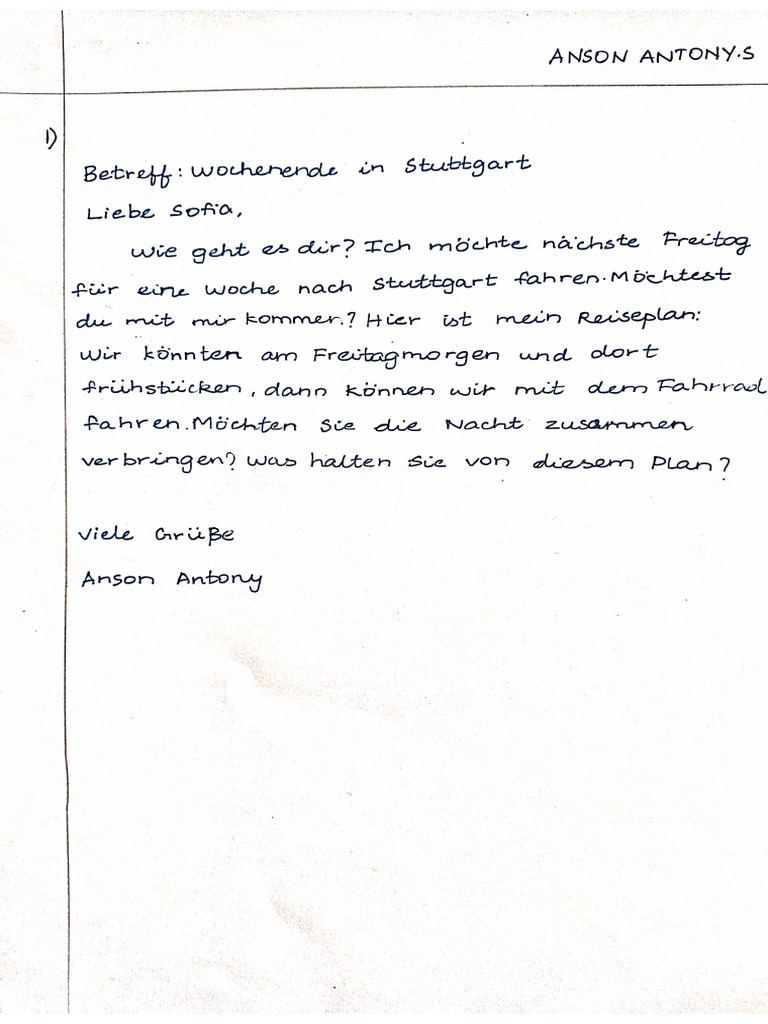 ANSON ANTONY.S
1)
Betreff: Wochenende in Stuttgart
Liebe Sofia,
Wie geht es dir? Ich möchte nächste Freitag
für eine Woche nach Stuttgart fahren. Möchtest
du mit mir kommen? Hier ist mein Reiseplan:
Wir könnten am Freitagmorgen und dort
frühstücken, dann können wir mit dem Fahrrad
fahren. Möchten Sie die Nacht zusammen
verbringen? Was halten Sie von diesem Plan?
Viele Grüße
Anson Antony